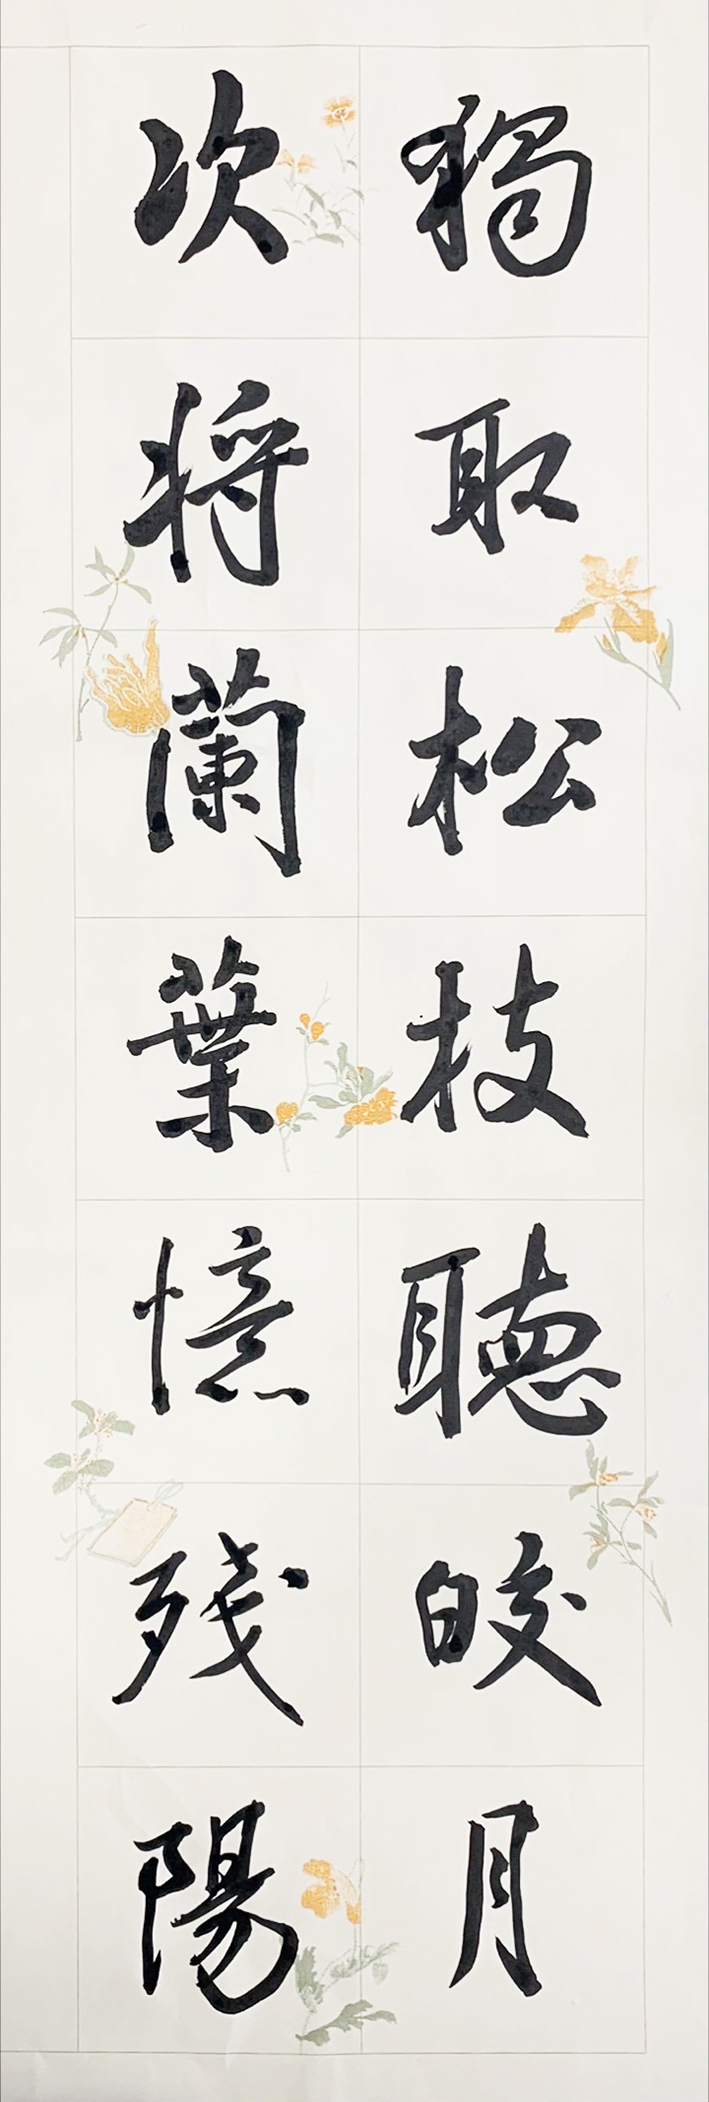 獨取松枝聽皎月
次將蘭葉憶殘陽